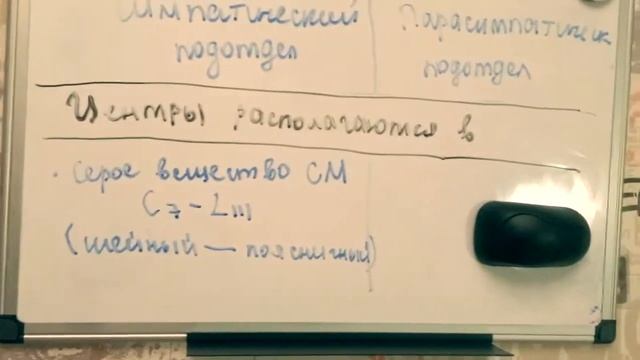 Симпатический
Парасимпатическ
подотдел
подотдел
Центры располагаются в
· серое вещество СМ
C7 - LIII
(шейный — поясничный)